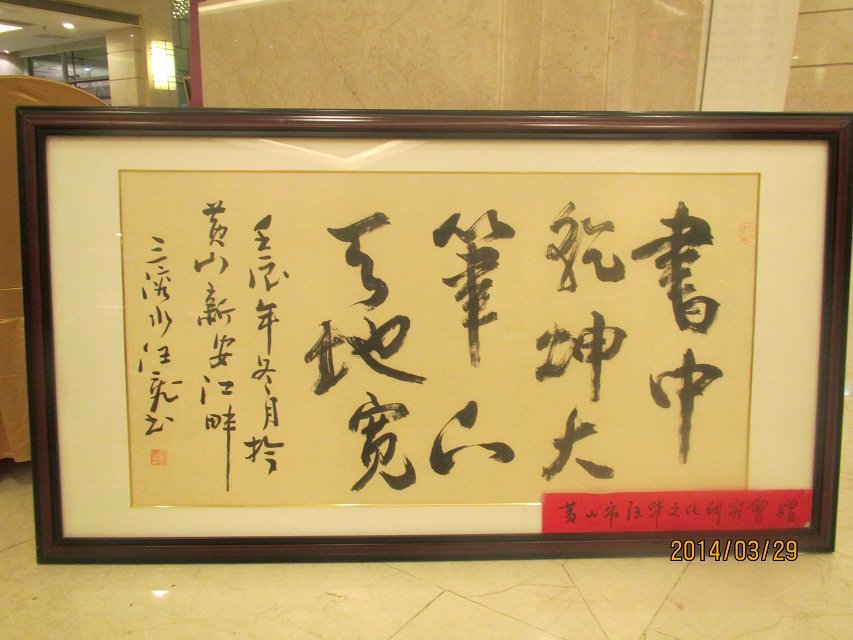 書中
乾坤大
筆下
天地寬
壬辰年冬月於
黄山新安江畔
三水汪书
黄山市汪华文化研究會贈
2014/03/29